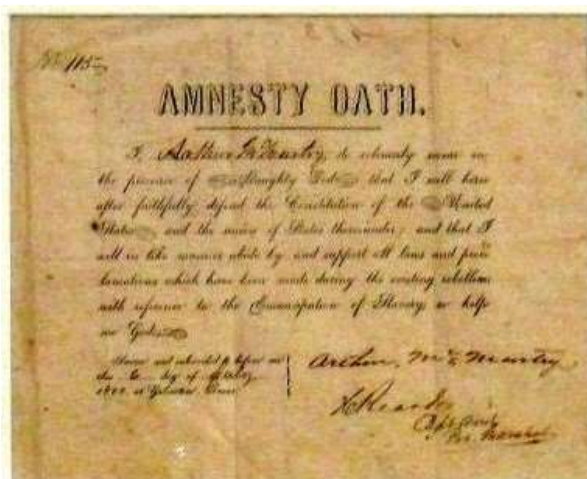 No 115
AMNESTY OATH.
I, Arthur McMearty, do solemnly swear in
the presence of Almighty God that I will here
after faithfully defend the Constitution of the United
States and the union of States thereunder; and that I
will in like manner abide by and support all laws and proc
lamations which have been made during the existing rebellion
with reference to the Emancipation of Slavery, so help
me God.
Sworn and subscribed before me
the day of
at
Arthur,
Marshal